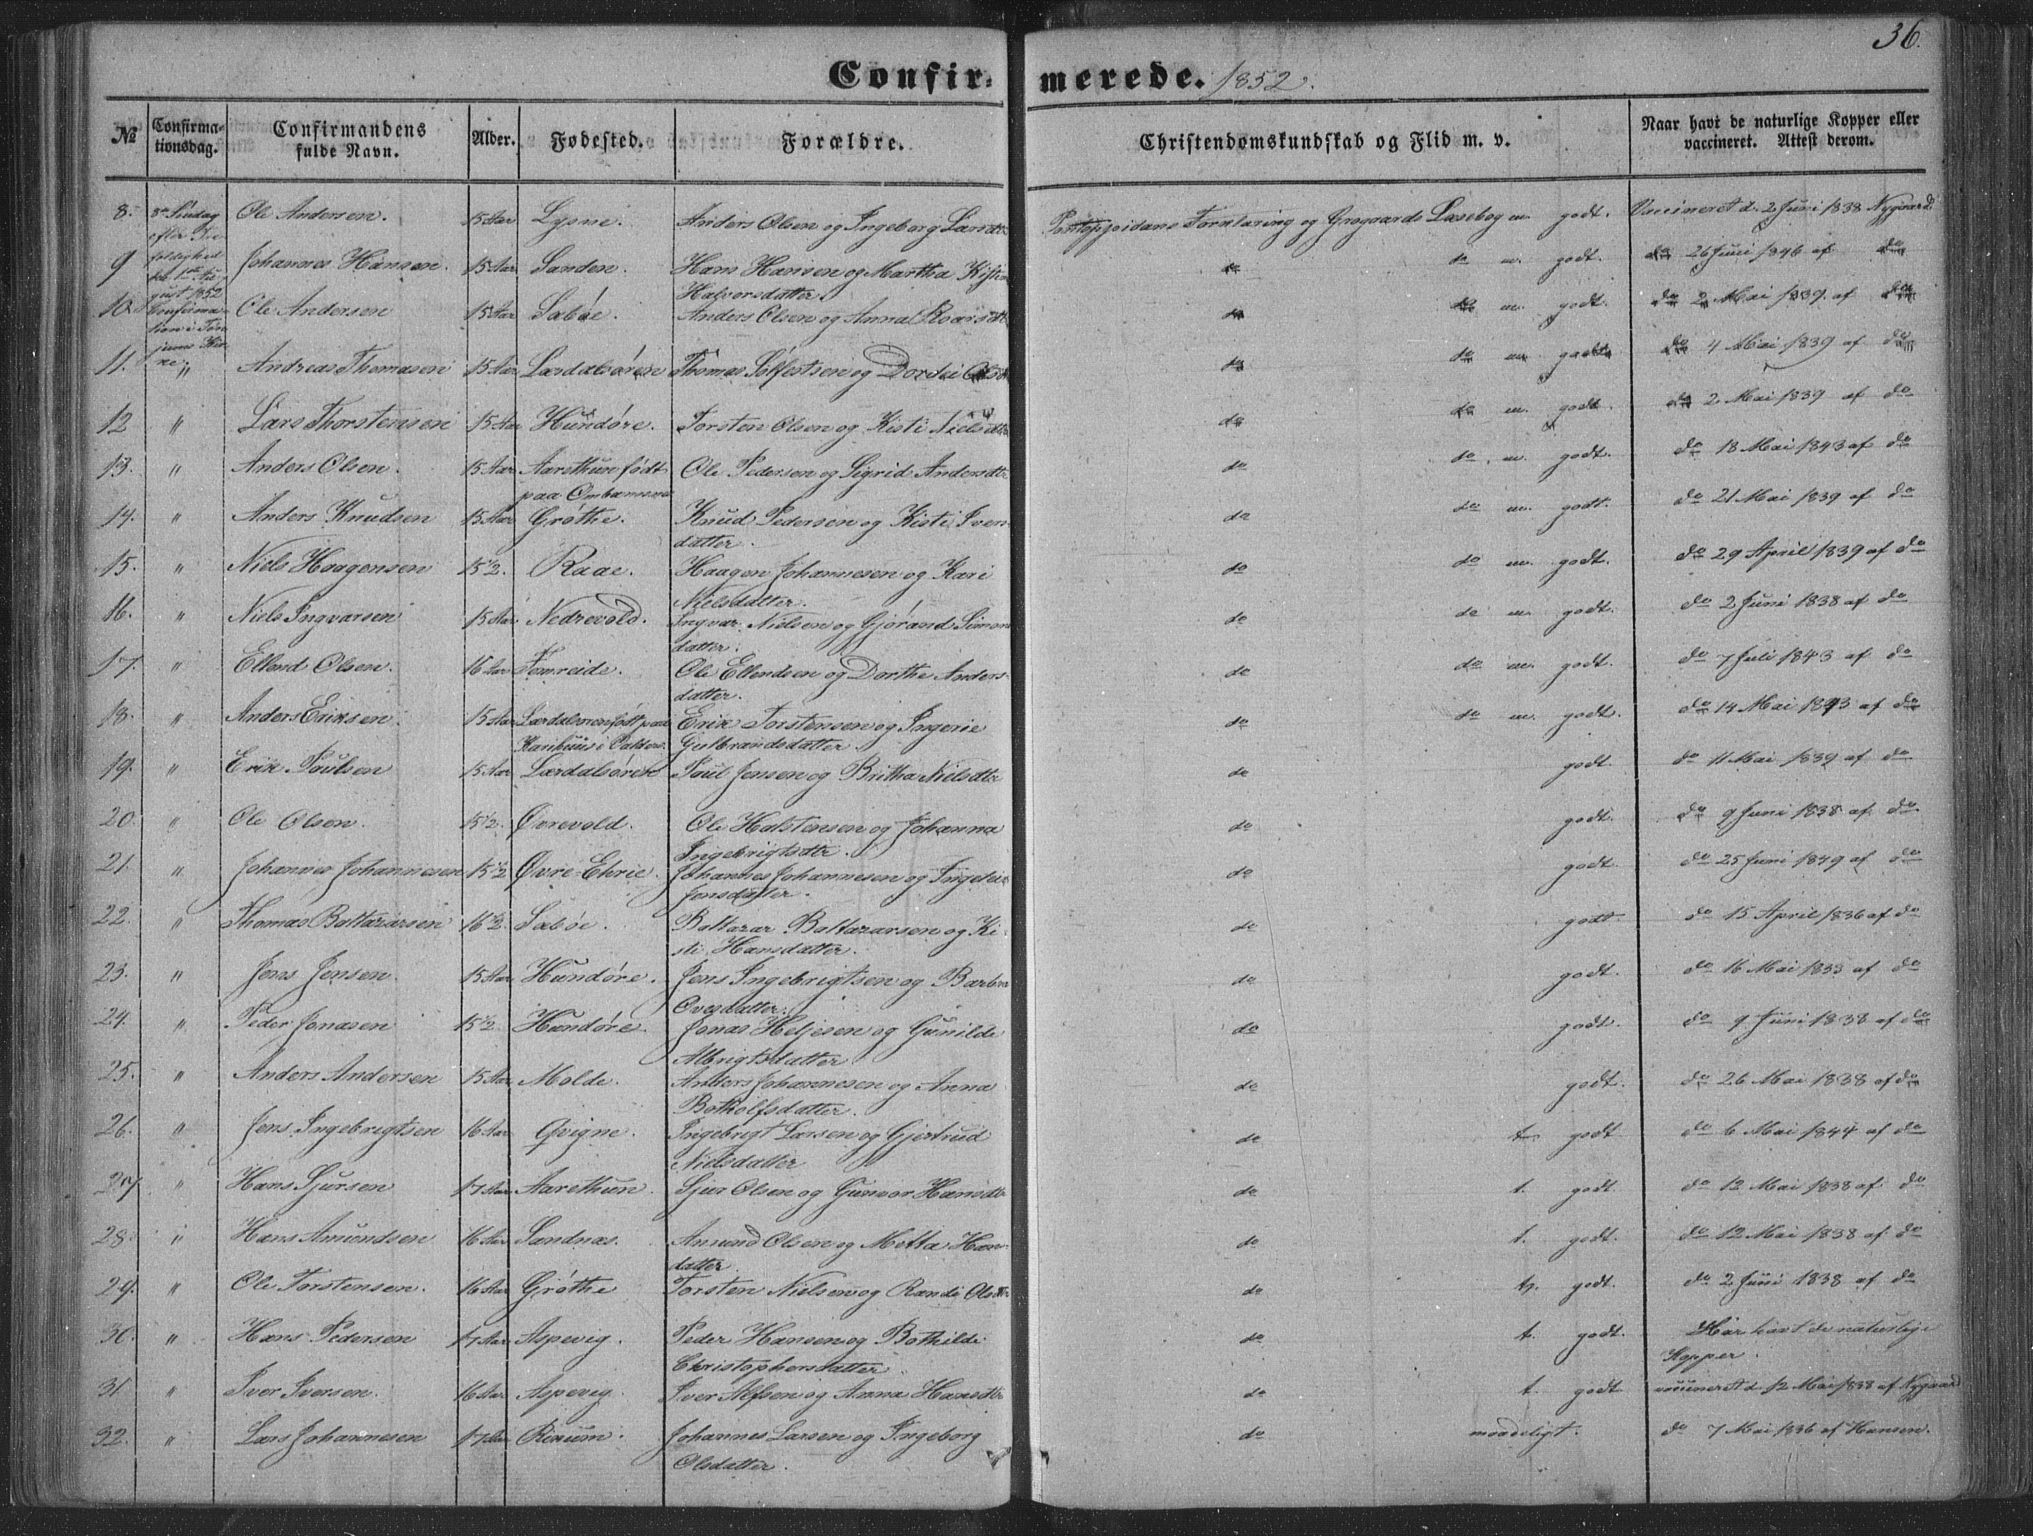 36.
Confirmerede. 1852.
№ Confirmationsdag. Confirmandens fulde Navn. Alder. Fødested. Forældre. Christendomskundskab og Flid m. v. Naar havt de naturlige Kopper eller vaccineret. Attest derom.
8. 8de Søndag Ole Andersen. 15 Aar Lysne. Anders Olsen og Ingeborg Pontoppidans Forklaring og Grogaards Læsebog m. godt. Vaccineret d. 2 Juni 1838 Nygaard
efter Tre
foldighed
9 Johannes Hansen. 15 Aar Sanden. Hans Hansen og Martha do do m. godt. do 26 Juni 1846 af do
1ste Au
gust 1852 Halvorsdatter.
10. Confirma Ole Andersen 15 Aar Sæbøe. Anders Olsen og Anna do do m. godt. do 2 Mai 1839 af do
tion i Tøn
jum Kir
ke,
11. " Andreas Thomasen 15 Aar Lærdalsøren Thomas Sølfestsen og Dordei do do m godt do 4 Mai 1839 af do
12 " Lars Thorstensen 15 Aar Hundøre. Torsten Olsen og Kisti Nielsdtr do do m. godt do 2 Mai 1839 af do
13. " Anders Olsen. 15 Aar Aarethun født Ole Pedersen og Sigrid Andersdtr do do m. godt. do 18 Mai 1843 af do
paa
14. " Anders Knudsen 15 Aar Grøthe. Knud Pedersen og Kisti Ivers do do m. godt. do 21 Mai 1839 af do
datter.
15. " Niels Haagensen 15½. Raae. Haagen Johannesen og Kari do do m. godt. do 29 April 1839 af do
Nielsdatter.
16. " Niels Ingvarsen 15 Aar Nedrevold. Ingvar Nielsen og Gjørand Simons do do m. godt. do 2 Juni 1838 af do
datter.
17. " Ellend Olsen. 16 Aar Tomreide. Ole Ellendsen og Dorthe Anders- do do m. godt. do 7 Juli 1843 af do
datter.
18. " Anders Eriksen. 15 Aar Lærdalsøren født paa Erik Torstensen og Ingerie do do m. godt. do 14 Mai 1843 af do
i Valders. Gulbrandsdatter.
19. " Erik Poulsen 15 Aar Lærdalsøren Poul Jensen og Britha Nielsdtr do godt. do 11 Mai 1839 af do
20. " Ole Olsen. 15½. Øvrevold. Ole Halstensen og Johanna do godt. do 9 Juni 1838 af do
Ingebrigtsdtr.
21. " Johannes Johannesen 15½ Øvre Ehrie. Johannes Johannesen og do godt. do 25 Juni 1849 af do
Jonsdatter.
22. " Thomas Baltazarsen 16½ Sæbøe. Baltazar Baltazarsen og Ki- do godt do 15 April 1836 af do
sti Hansdatter.
23. " Jens Jensen. 15 Aar Hundøre. Jens Ingebrigtsen og Barbra do godt. do 16 Mai 1833 af do
Ovesdatter.
24. " Peder Jonasen 15½ Hundøre. Jonas Heljesen og Gunilde do godt. do 9 Juni 1838 af do
Albrigtsdatter
25. " Anders Andersen 15 Aar Molde. Anders Johannesen og Anna do godt. do 26 Mai 1838 af do
Botholfsdatter.
26. " Jens Ingebrigtsen 16 Aar Qvigne. Ingebrigt Larsen og Gjertrud do t. godt do 6 Mai 1844 af do
Nielsdatter
27 " Hans Sjursen 17 Aar Aarethun. Sjur Olsen og Gunvor Hansdtr do t. godt do 12 Mai 1838 af do
28. " Hans Amundsen 16 Aar Sandnæs. Amund Olsen og Metta Hans- do t. godt. do 12 Mai 1838 af do
datter.
29. " Ole Torstensen. 16 Aar Grøthe Torsten Nielsen og Randi Olsdtr do t. godt. do 2 Juni 1838 af do
30. " Hans Pedersen 17 Aar Aspevig. Peder Hansen og Bothilde do t. godt. Har havt de naturlige
Christophersdatter Kopper.
31 " Iver Iversen. 16 Aar Aspevig. Iver Alfsen og Anna Hansdtr do t. godt vaccineret d. 12 Mai 1838 af Nygaard
32. " Lars Johannesen 17 Aar Rikum. Johannes Larsen og Ingeborg do maadeligt. do 7 Mai 1836 af Hansen.
Olsdatter.